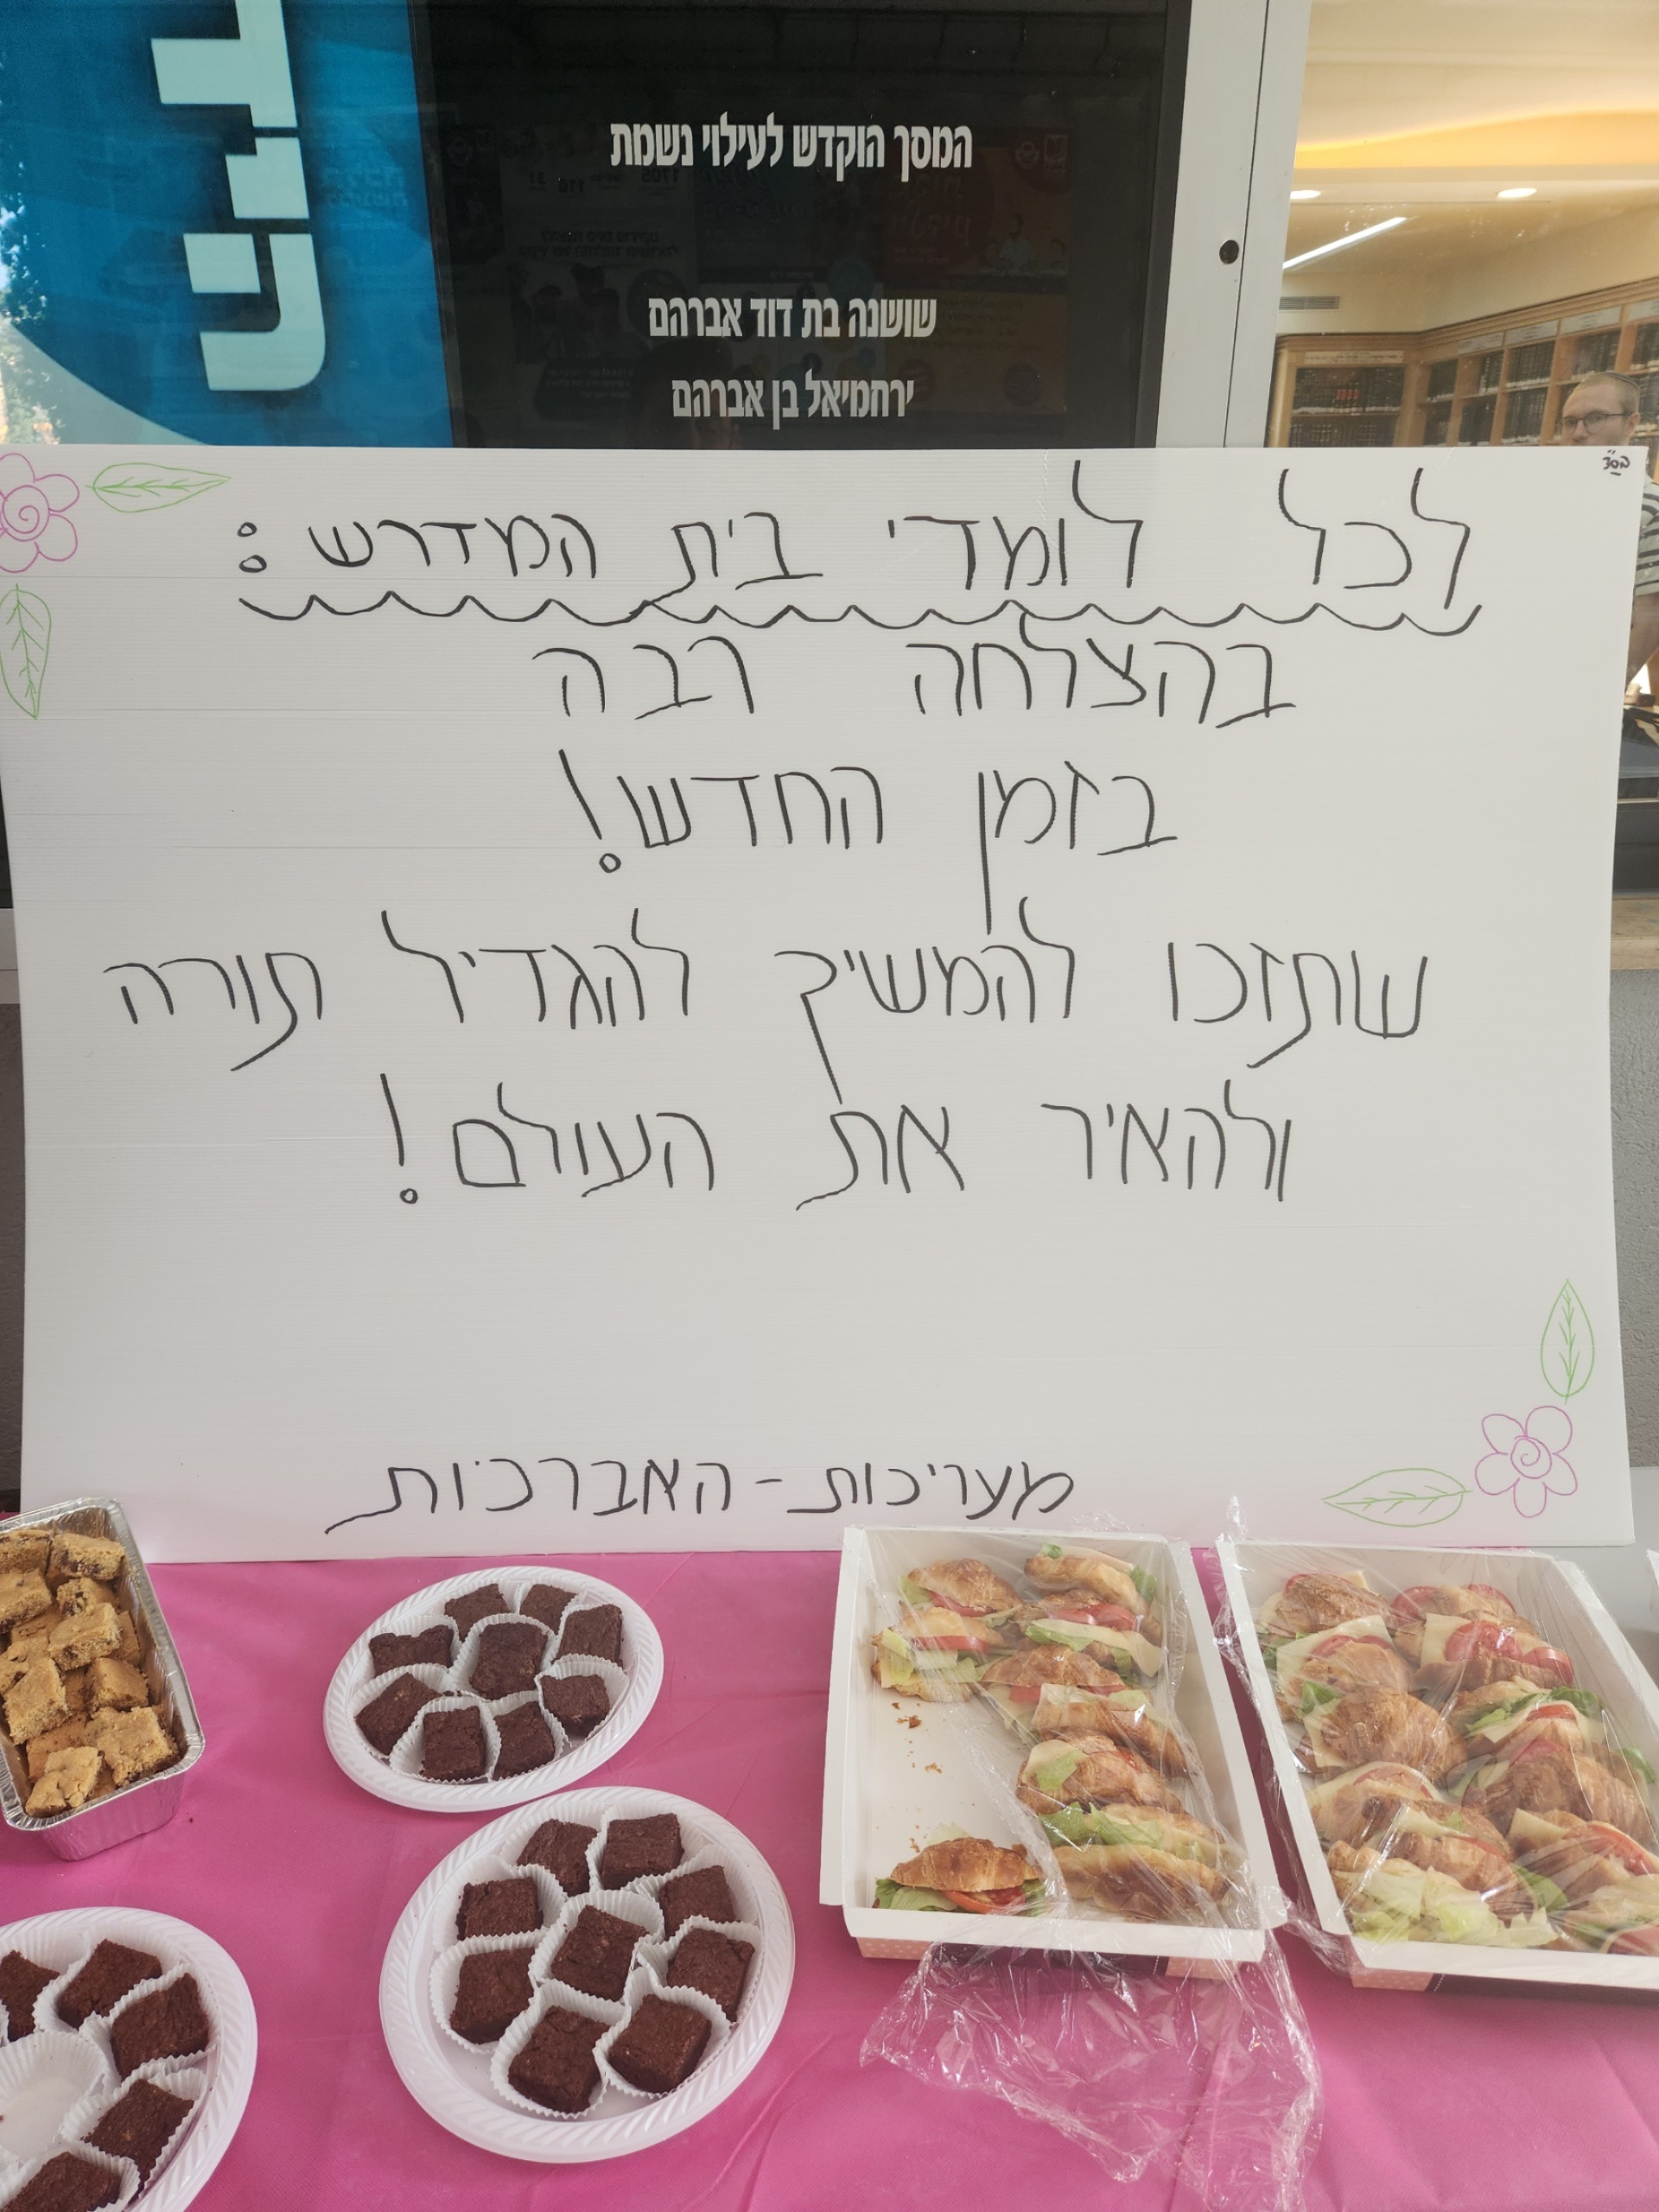 המסך הוקדש לעילוי נשמת
שושנה בת דוד אברהם
ירחמיאל בן אברהם
בס"ד
לכל לומדי בית המדרש:
בהצלחה רבה
בזמן החדש!
שתזכו להמשיך להגדיל תורה
ולהאיר את העולם!
מעריכות - האברכות